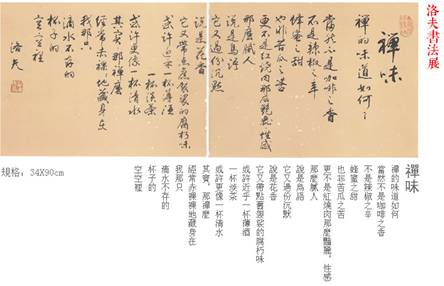 洛夫書法展
禪味
禪的味道如何
當然不是咖啡之香
不是辣椒之辛
蜂蜜之甜
也非苦瓜之苦
更不是紅燒肉那麼艷麗，性感
那麼膩人
說是鳥語
它又過份沉默
說是花香
它又帶點舊袈裟的腐朽味
或許近乎一杯薄酒
一杯淡茶
或許更像一杯清水
其實，那禪麼
經常赤裸裸地藏身在
我那只
滴水不存的
杯子的
空空裡
洛夫
禪味
禪的味道如何
當然不是咖啡之香
不是辣椒之辛
蜂蜜之甜
也非苦瓜之苦
更不是紅燒肉那麼豔麗，性感
那麼膩人
說是鳥語
它又過份沉默
說是花香
它又帶點舊袈裟的腐朽味
或許近乎一杯薄酒
一杯淡茶
或許更像一杯清水
其實，那禪麼
經常赤裸裸地藏身在
我那只
滴水不存的
杯子的
空空裡
規格：34X90cm